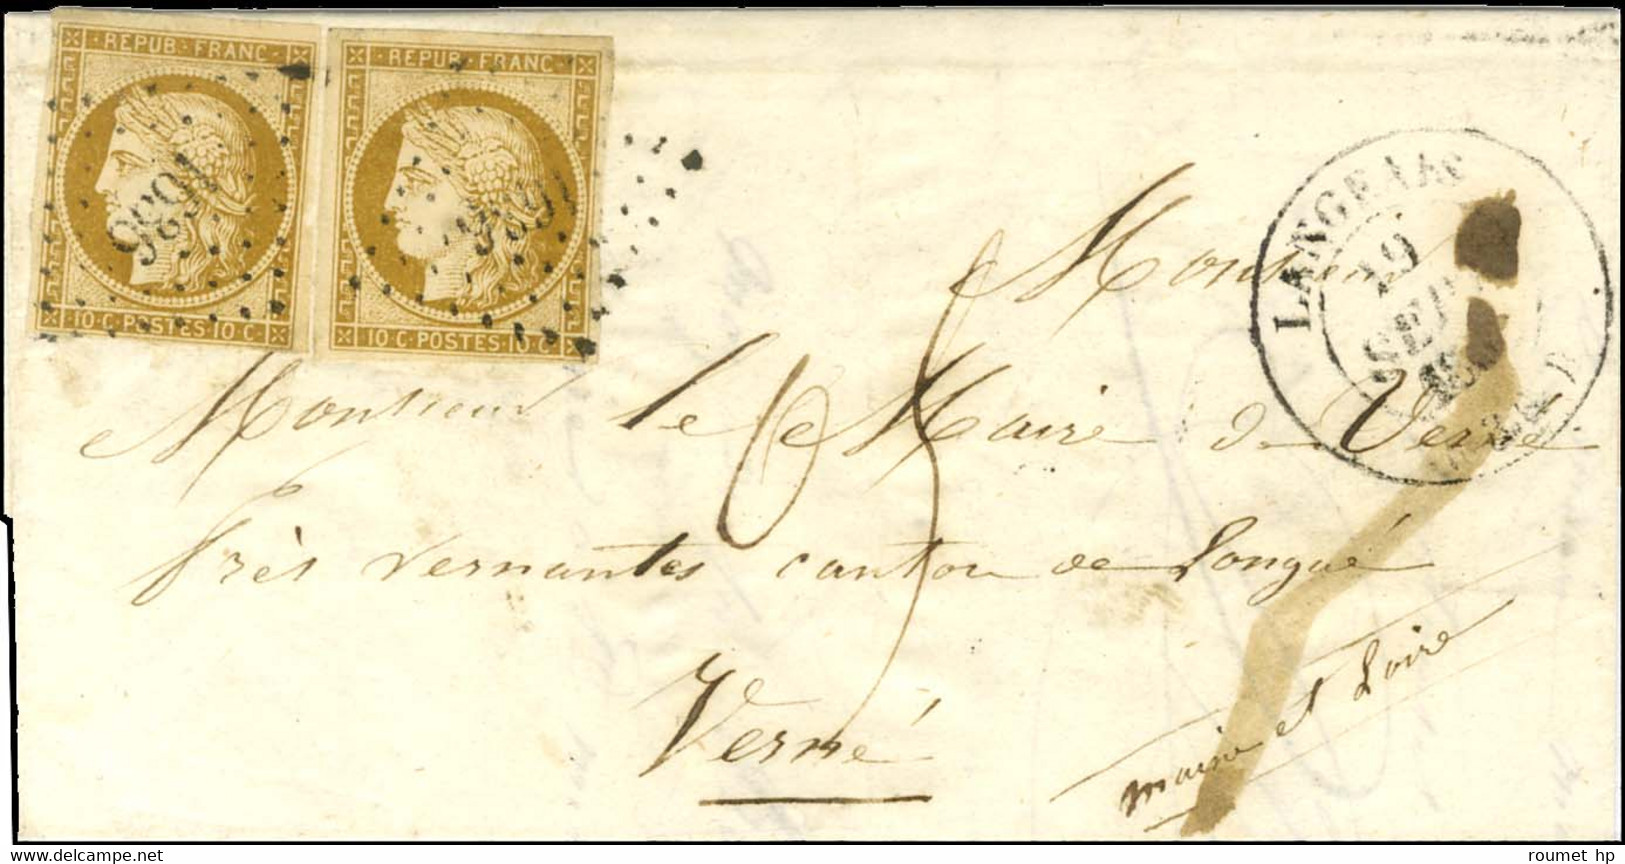 REPUB · FRANC ·
· REPUB · FRANC ·
1636
1636
10 · C · POSTES · 10 · C ·
10 · C · POSTES · 10 · C ·
LANGEAIS
19
SEPT
Monsieur
Monsieur le Maire de Verné
Près Vernantes canton de Longué
Verné
maine et Loire
roumet hp